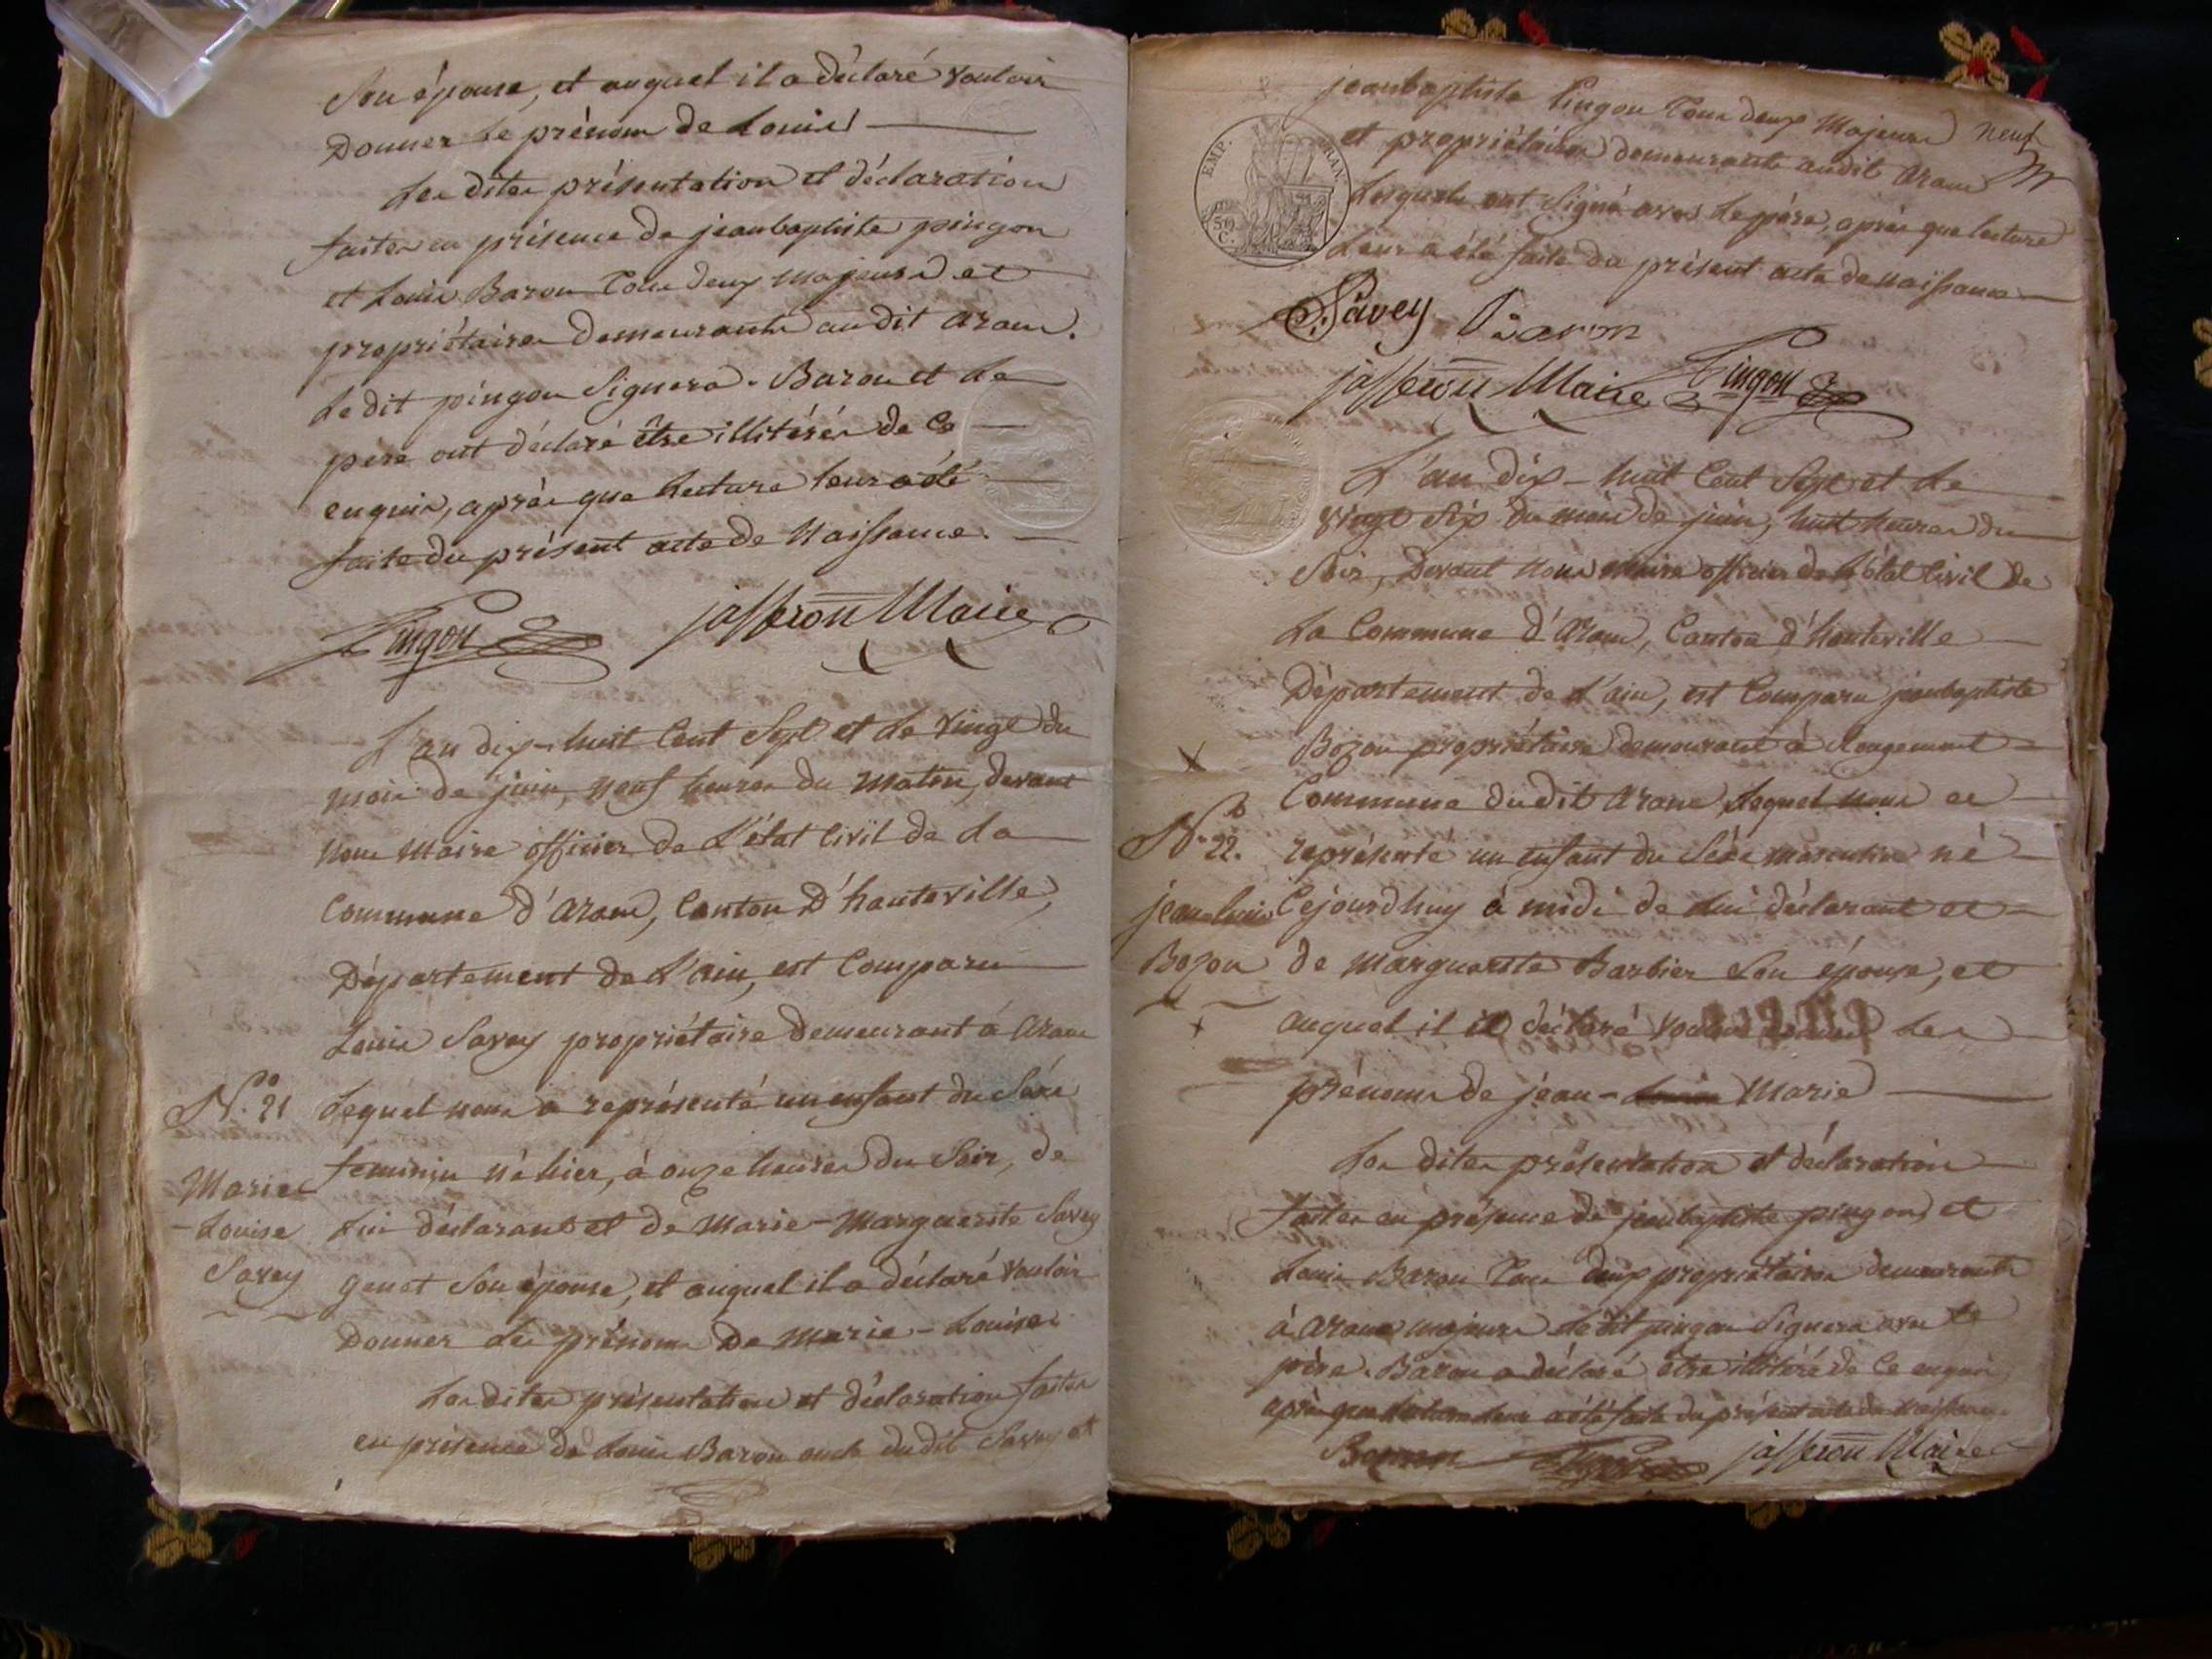 Son épouse, et auquel il a déclaré vouloir
Donner le prénom de Louis
Les dites présentation et déclaration
faites en présence de jeanbaptiste pingon
et Louis Baron tous deux majeurs et
propriétaires demeurants au dit arane.
Le dit pingon signera. Baron et le
père ont déclaré être illitérés de ce
enquis, après que lecture leur a été
faite du présent acte de Naissance.
Pingon jasseron Maire
L'an dix-huit cent sept et le vingt du
mois de juin, neuf heures du matin, devant
nous maire officier de L'état civil de la
commune d'arane, canton D'hauteville,
Département de L'ain, est comparu
Louis Savey propriétaire demeurant à arane
N.º 21 Lequel nous a représenté un enfant du Séxe
féminin né hier, à onze heures du Soir, de
Marie Lui déclarant et de Marie-Marguerite Savey
Louise genet Son épouse, et auquel il a déclaré vouloir
Savey Donner les prénoms De Marie-Louise.
Les dites présentation et déclaration faites
en présence de Louis Baron oncle dudit Savey et
jeanbaptiste Pingon tous deux Majeurs
neuf
et propriétaires demeurants audit arane
EMP. FRAN.
50 C.
Lesquels ont signé avec le père, après que lecture
Leur a été faite du présent acte de naissance
Savey Baron
jasseron Maire Pingon
L'an dix-huit cent Sept et le
vingt Six du mois de juin, huit heures du
Soir, Devant nous maire officier de l'état civil de
La Commune d'arane, Canton d'hauteville
Département de L'ain, est comparu jeanbaptiste
Bozon propriétaire demeurant à Rougemont
Commune du dit arane Lequel nous a
Nº 22. représenté un enfant du Séxe masculin né
jean Louis Cejourdhuy à midi de Lui déclarant et
Bozon de Marguerite Barbier Son épouse, et
auquel il a déclaré vouloir donner les
prénoms de jean-Louis Marie
Les dites présentation et déclaration
faites en présence de jeanbaptiste pingon et
Louis Baron tous deux propriétaires demeurants
à arane majeurs le dit pingon Signera avec le
père. Baron a déclaré être illitéré de ce enquis
après que lecture leur a été faite du présent acte de naissance
Bozon Pingon jasseron Maire